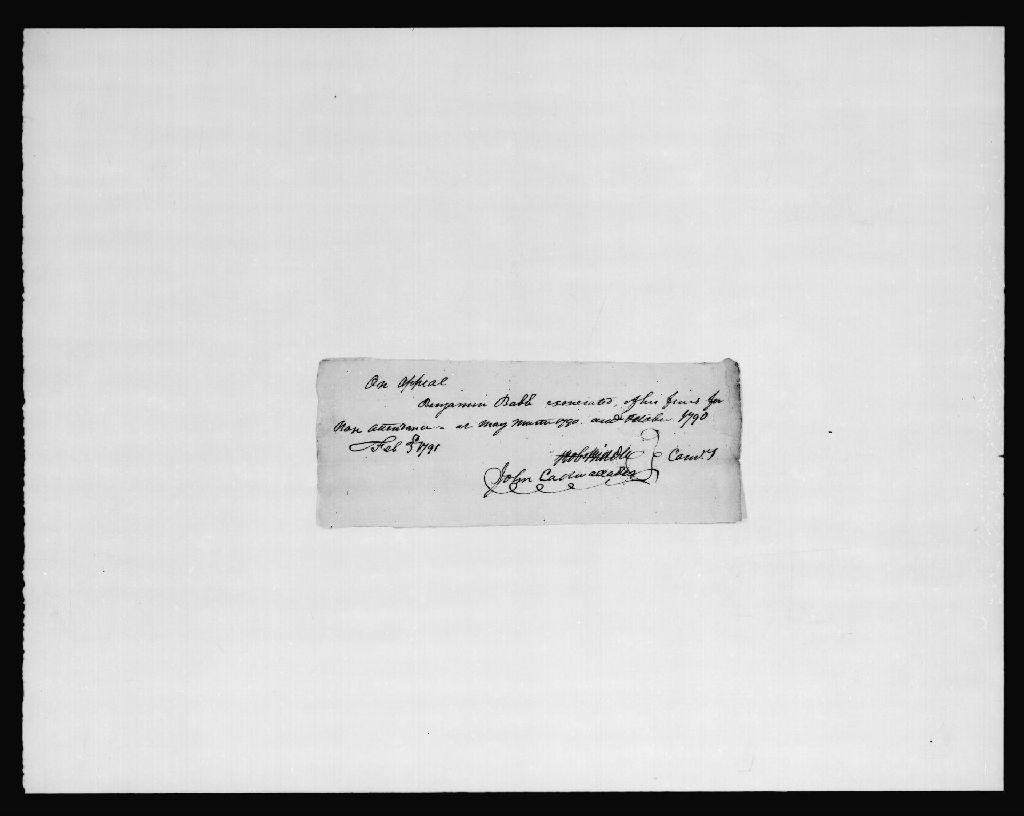 On Appeal
Benjamin Babb exonerated of his fines for
Non attendance - at May Muster 1790. and October 1790
Feb 3d 1791
John Cadwallader